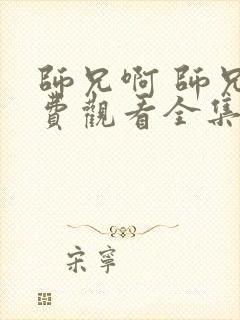 師兄啊 師兄
費觀看全集
宋寧